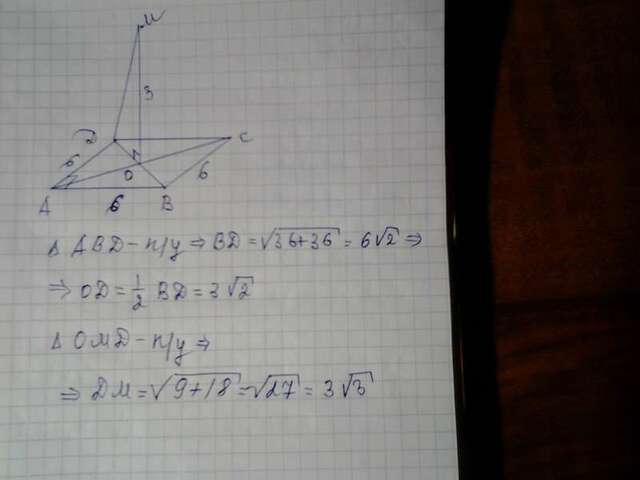 М
3
Д
C
6
O
6
A
6
B
Δ ABD - п/у ⇒ BD = √36+36 = 6√2 ⇒
⇒ OD = 1/2 BD = 3√2
Δ OMD - п/у ⇒
⇒ DM = √9+18 = √27 = 3√3